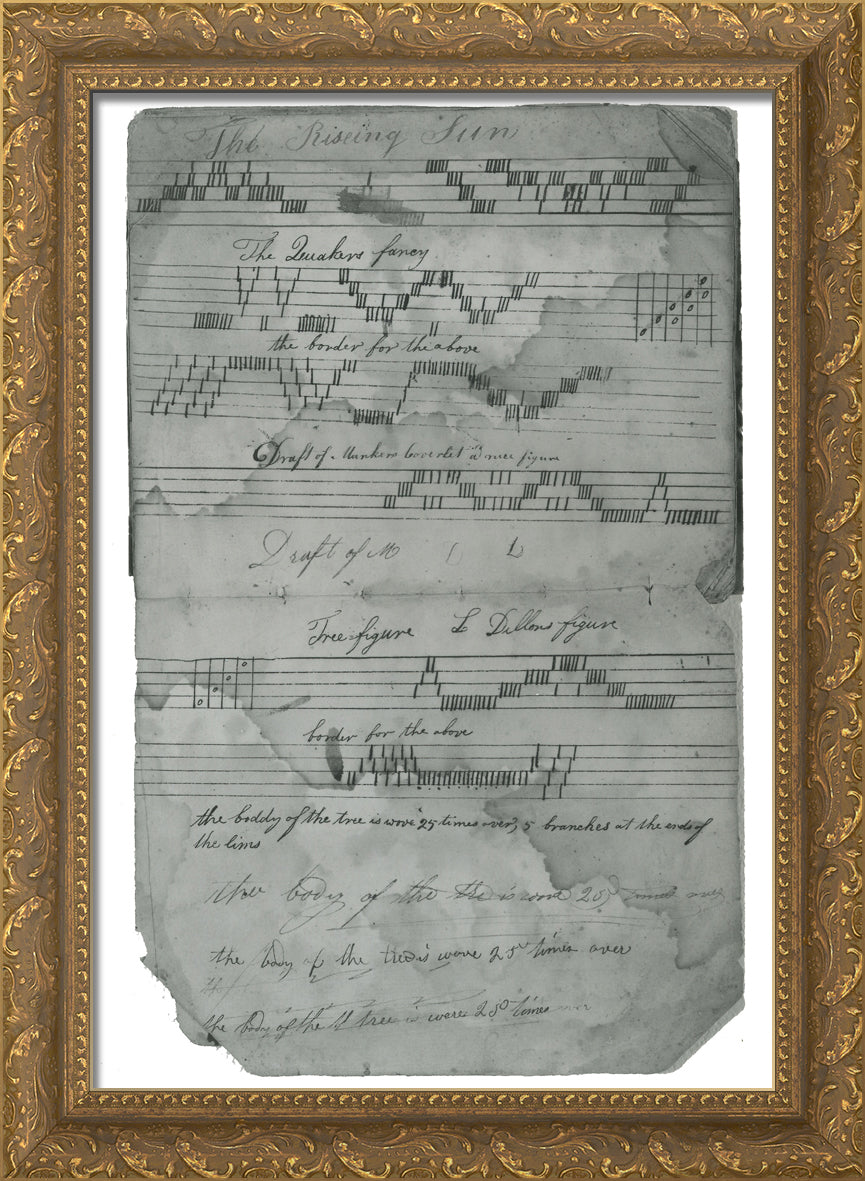 The Riseing Sun
The Quakers fancy
the border for the above
Draft of Coverlet a nice figure
Draft of M L
Tree figure L Dillons figure
border for the above
the boddy of the tree is wove 25 times over, 5 branches at the ends of
the lims
tree body of the tre is wove 25 times over
the body of the tre is wove 25 times over
the body of the tree is wove 25 times over